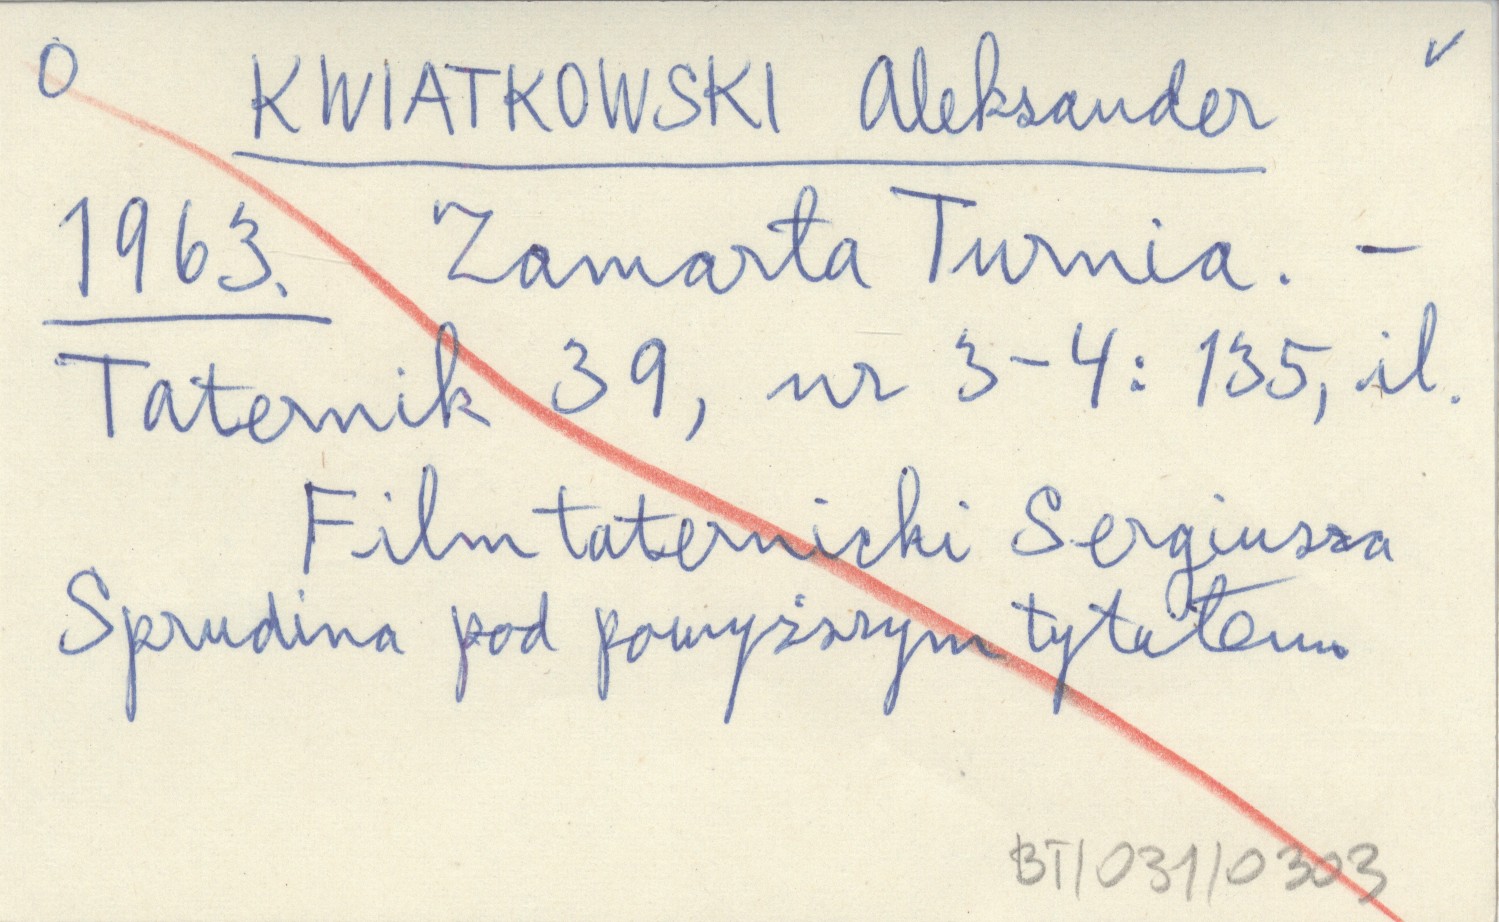 O KWIATKOWSKI Aleksander ✓
1963. Zamarła Turnia. -
Taternik 39, nr 3-4: 135, il.
Film taternicki Sergiusza
Sprudina pod powyższym tytułem.
BT/031/0303